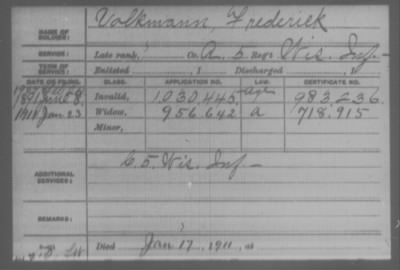 NAME OF SOLDIER: Volkmann, Frederick
SERVICE: Late rank, Co. A, 5 Reg't Wis. Inf
TERM OF SERVICE: Enlisted , 1 Discharged , 1
DATE OF FILING. CLASS. APPLICATION NO. LAW. CERTIFICATE NO.
1891 June 8, Invalid, 1.030.445 983.236.
1911 Jan 23 Widow, 956.642 a 718.915
Minor,
ADDITIONAL SERVICES: C. 5. Wis. Inf
REMARKS:
Died Jan 17, 1911, at